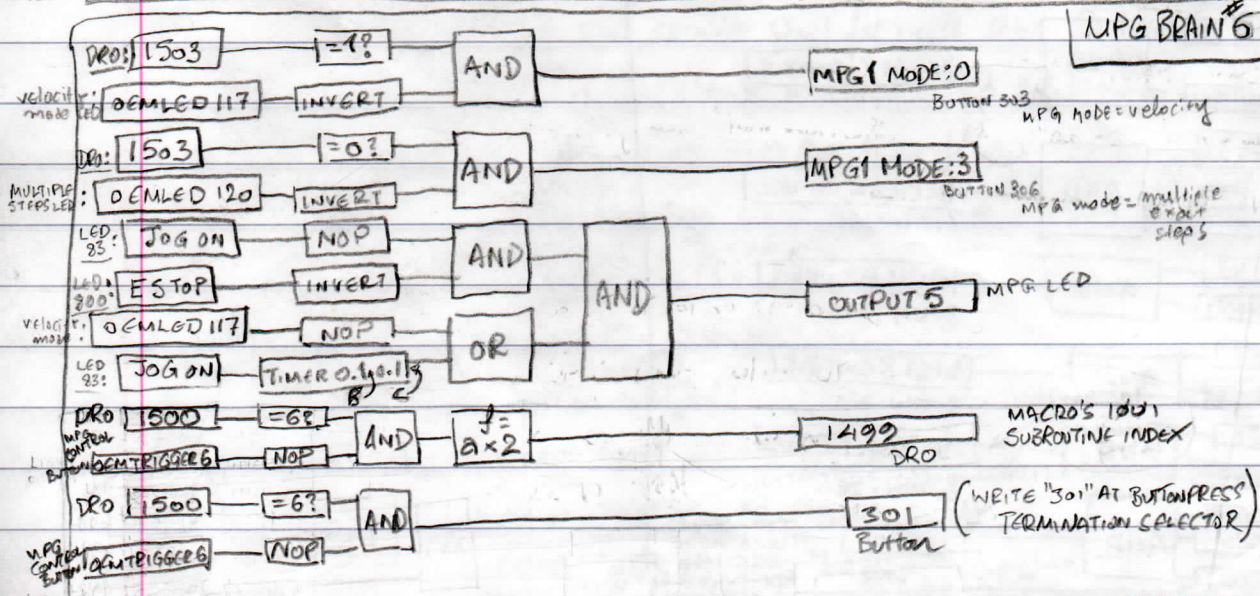 MPG BRAIN #6
DRO: 1503 =1? AND MPG1 MODE:0
BUTTON 303
MPG MODE=velocity
velocity mode LED: OEMLED 117 INVERT
DRO: 1503 =0? AND MPG1 MODE:3
BUTTON 306
MPG mode= multiple exact steps
MULTIPLE STEPS LED: OEMLED 120 INVERT
LED 83: JOG ON NOP AND
LED 800: ESTOP INVERT AND OUTPUT 5 MPG LED
velocity mode: OEMLED 117 NOP OR
LED 83: JOG ON TIMER 0.1, 0.1
B C
DRO 1500 =6? AND f= a×2 1499 MACRO'S 1001
DRO SUBROUTINE INDEX
MPG CONTROL BUTTON OEMTRIGGER6 NOP
DRO 1500 =6? AND 301 (WRITE "301" AT BUTTONPRESS
Button TERMINATION SELECTOR)
MPG CONTROL BUTTON OEMTRIGGER6 NOP